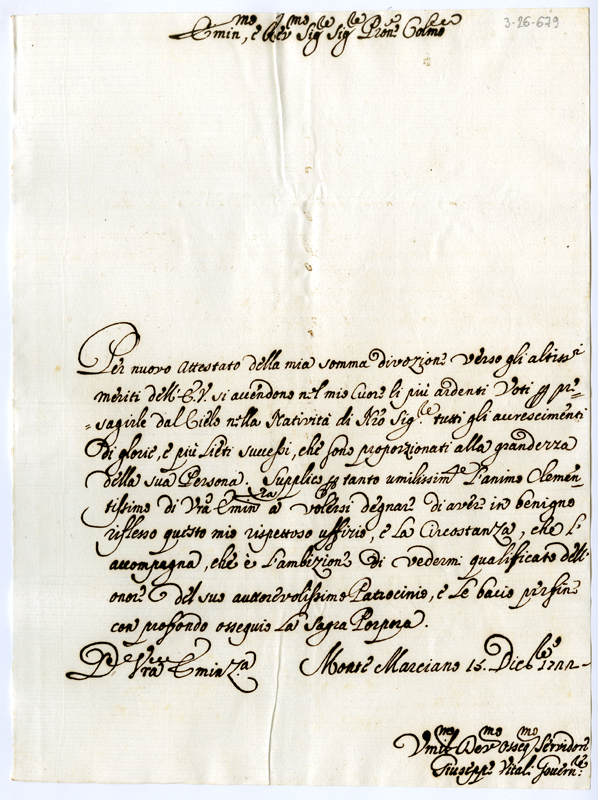 3-26-679
Emin.mo, e Rev.mo Sig.re Sig.re Pron.e Colmo
Per nuovo attestato della mia somma divozion.e verso gli altiss.i
meriti dell'E.V. si accendono nel mio Cuore li più ardenti Voti p pre=
=sagirle dal Cielo nella Natività di Nro Sig.re tutti gli accrescimenti
di glorie, e più lieti successi, che sono proporzionati alla grandezza
della sua Persona. Supplico p tanto umilissim.te l'animo Clemen
tissimo di Vra Emin.za a volersi degnar di aver in benigno
riflesso questo mio rispettoso uffizio, e la Circostanza, che l'
accompagna, che è l'ambizion.e di vedermi qualificato dell'
onore del suo auttorevolissimo Patrocinio, e le bacio per fine
con profondo ossequio la Sagra Porpora.
Di Vra Eminza
Monte Marciano 15. Dicb.re 1722
Vmil.mo Dev.mo Osseq.mo Servidore
Giuseppe Vitali Govern.re